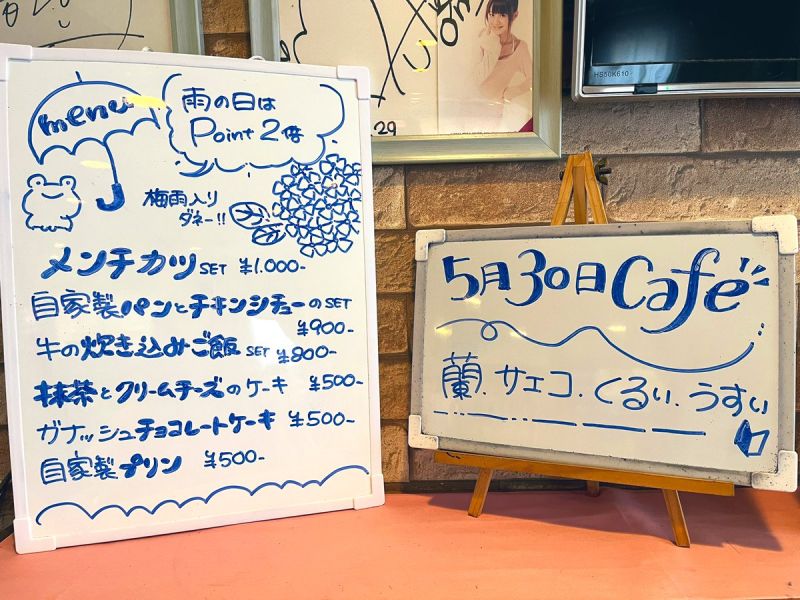 menu
雨の日は
Point 2倍
梅雨入り
ダネー!!
メンチカツ SET ¥1.000-
自家製パンとチキンシチューのSET
¥900-
牛の炊き込みご飯 SET ¥800-
抹茶とクリームチーズのケーキ ¥500-
ガナッシュチョコレートケーキ ¥500-
自家製プリン ¥500-
29
HS50K610
5月30日 Cafe
蘭.サエコ.くるい.うすい